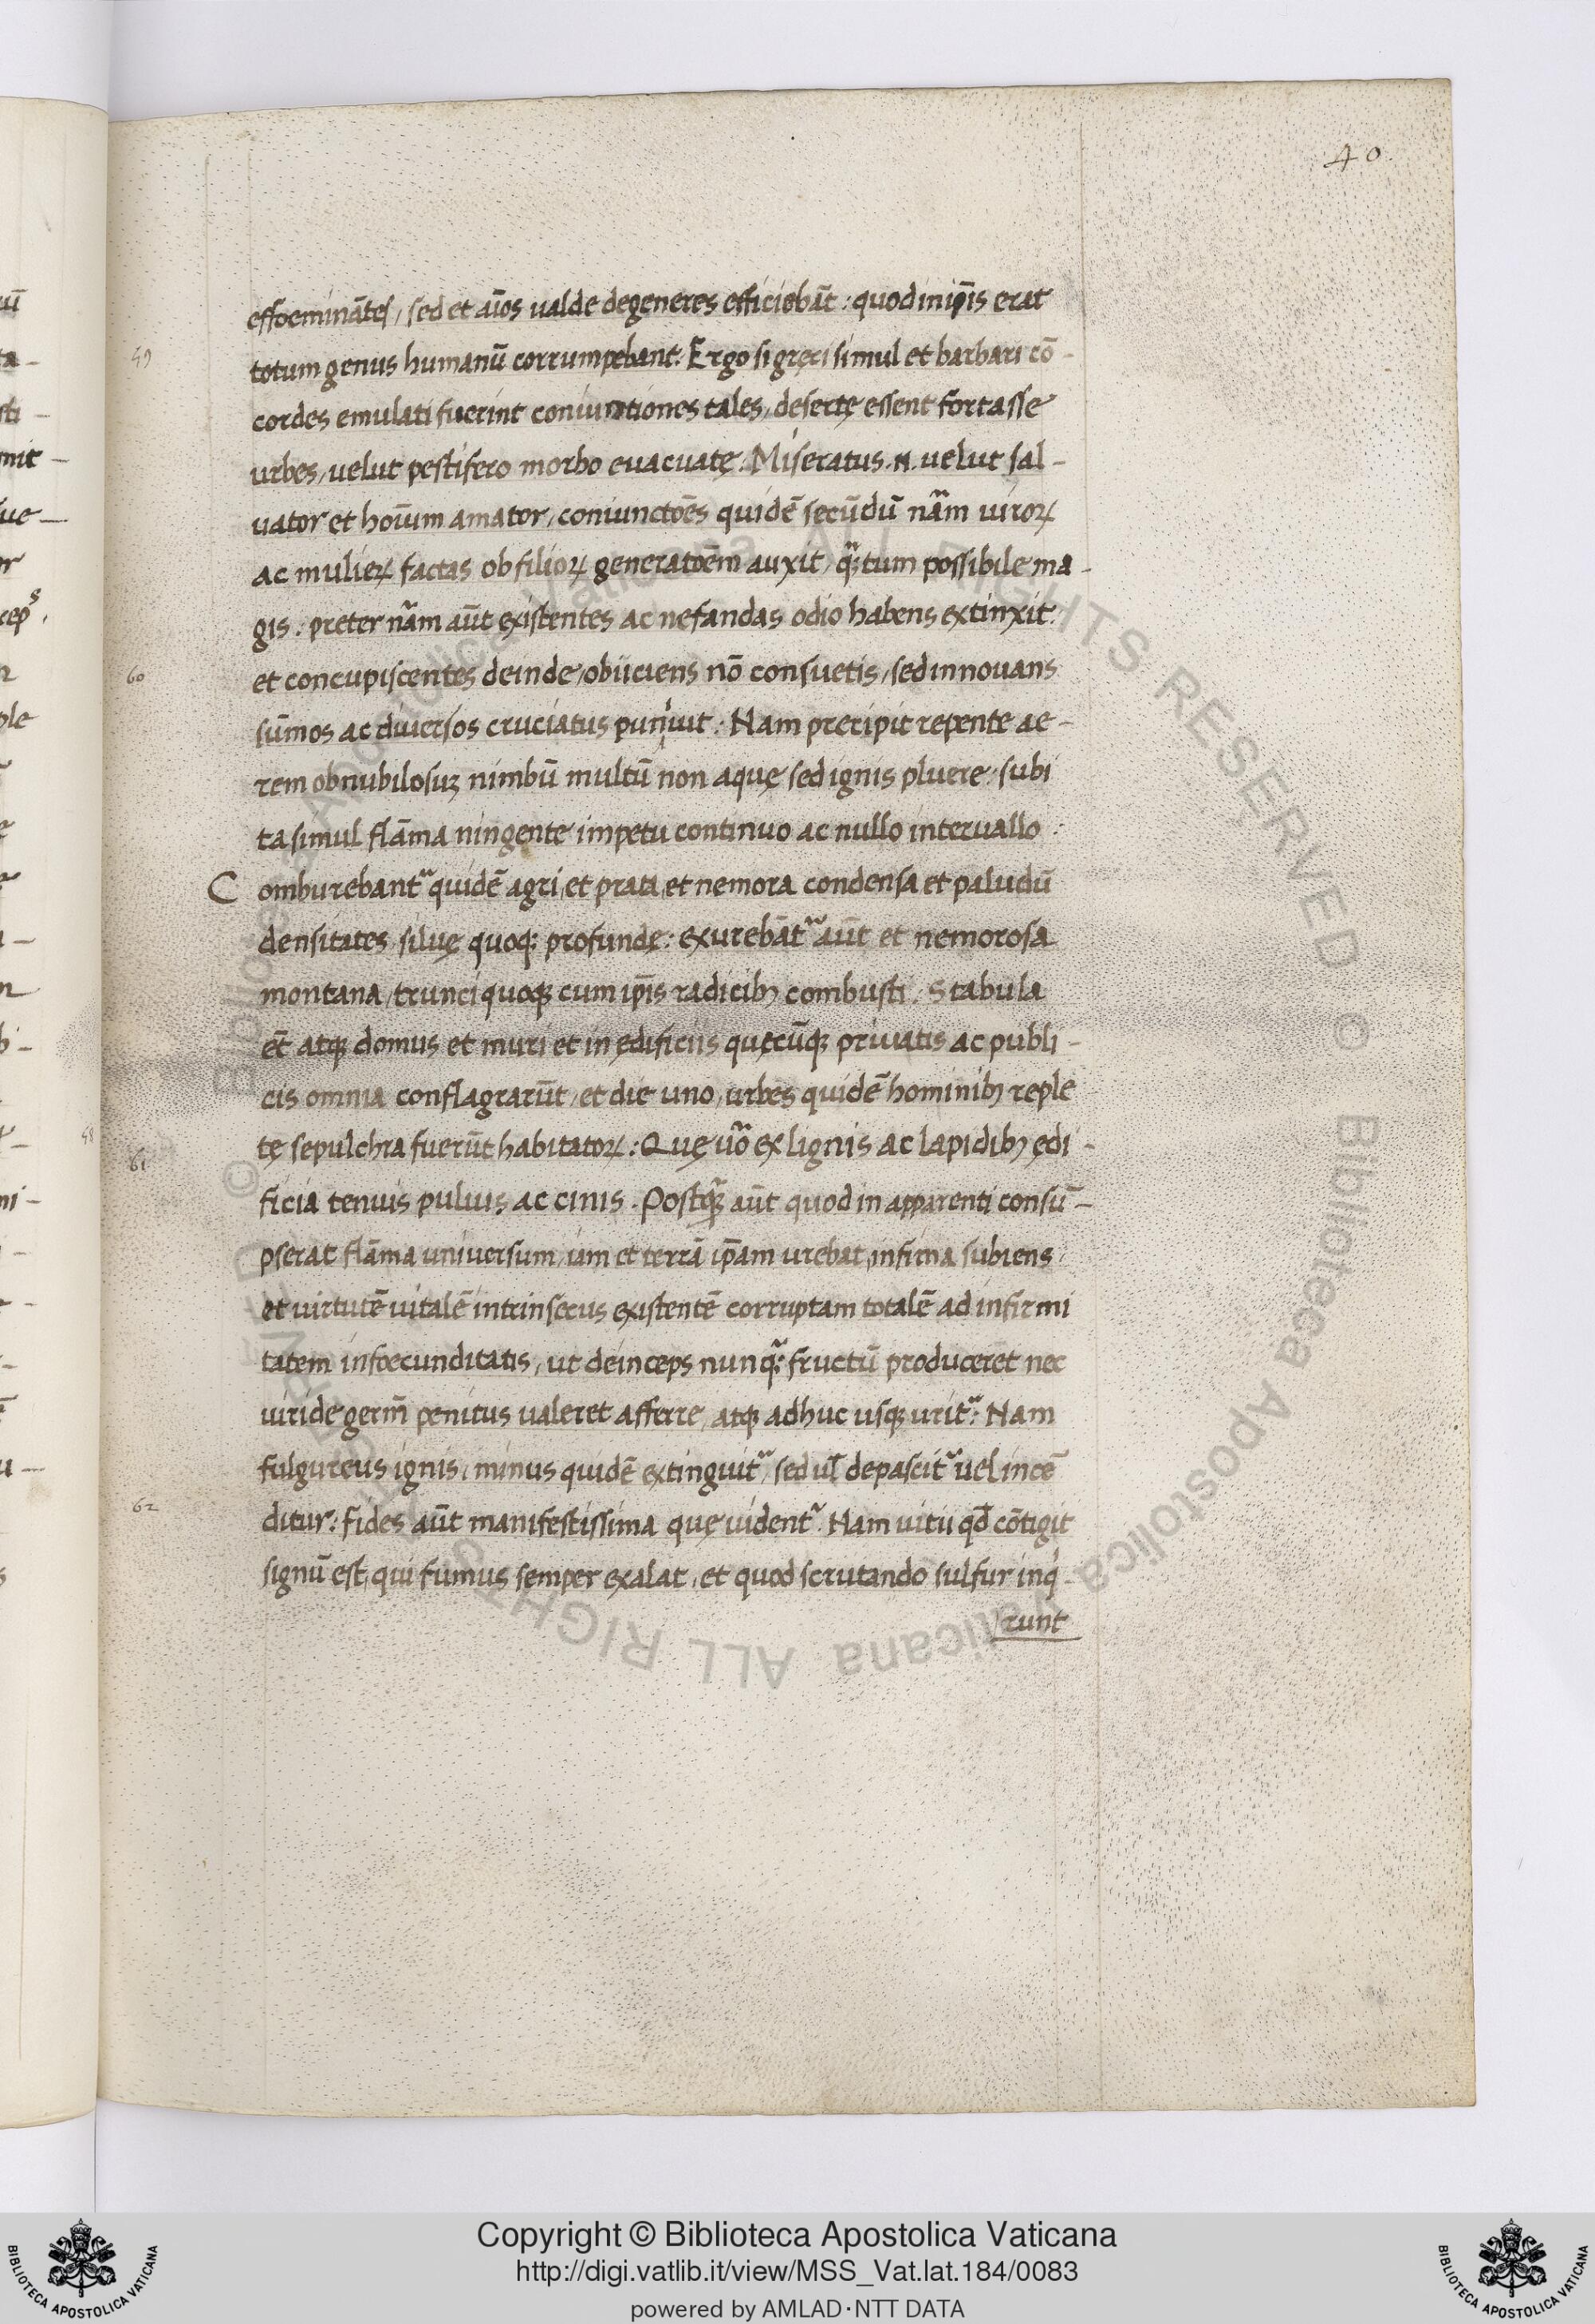 40
effoemināteſ, sed et aīos ualde degeneres efficiebāt: quod in ip̄is erat
59 totum genus humanū corrumpebant. Ergo si gręci simul et barbari cō-
cordes emulati fuerint coniunctiones tales, desertę essent fortasse
urbes, uelut pestifero morbo euacuatę. Miseratus .n. uelut sal-
uator et hoīum amator, coniunctoēs quidē secūdū nāam uiroꝝ
ac mulieꝝ factas ob filioꝝ generatoēm auxit, qᷓtum possibile ma-
gis: preter nāam aūt existentes ac nefandas odio habens extinxit:
60 et concupiscentes deinde, obiiciens nō consuetis, sed innouans
sūmos ac diuersos cruciatus puniuit: Nam precipit repente ae-
rem obnubilosuꝫ nimbū multū non aquę sed ignis pluere: subi
ta simul flāma ningente impetu continuo ac nullo interuallo:
Comburebantᷓ quidē agri, et prata, et nemora condensa et paludū
densitates, siluę quoqꝫ profundę: exurebātᷓ aūt et nemorosa
montana, trunci quoqꝫ cum ip̄is radicibꝫ combusti. Stabula
ēt atqꝫ domus et muri et in ędificiis quęcūqꝫ priuatis ac publi-
cis omnia conflagrarūt, et die uno, urbes quidē hominibꝫ reple
61 tę sepulchra fuerūt habitatoꝝ: Quę uo᷑ ex lignis ac lapidibꝫ ędi-
ficia tenuis puluis ac cinis. Postqᷓꝫ aūt quod in apparenti consū-
pserat flāma uniuersum, iam et terrā ip̄am urebat, infima subiens,
et uirtutē uitalē intrinsecus existentē corruptam totalē ad infirmi
tatem infoecunditatis, ut deinceps nunqᷓ: fructū produceret nec
uiride germ̄ penitus ualeret afferre, atqꝫ adhuc usqꝫ uritᷓ: Nam
fulgureus ignis, minus quidē extinguitᷓ, sed ul̄ depascitᷓ uel incē
62 ditur: fides aūt manifestissima quę uidentᷓ. Nam uitii qd̄ cōtigit
signū est, qui fumus semper exalat, et quod scrutando sulfur inq̇-
runt
58
Copyright © Biblioteca Apostolica Vaticana
http://digi.vatlib.it/view/MSS_Vat.lat.184/0083
powered by AMLAD·NTT DATA
BIBLIOTECA APOSTOLICA VATICANA
BIBLIOTECA APOSTOLICA VATICANA
© Biblioteca Apostolica Vaticana ALL RIGHTS RESERVED © Biblioteca Apostolica Vaticana ALL RIGHTS RESERVED